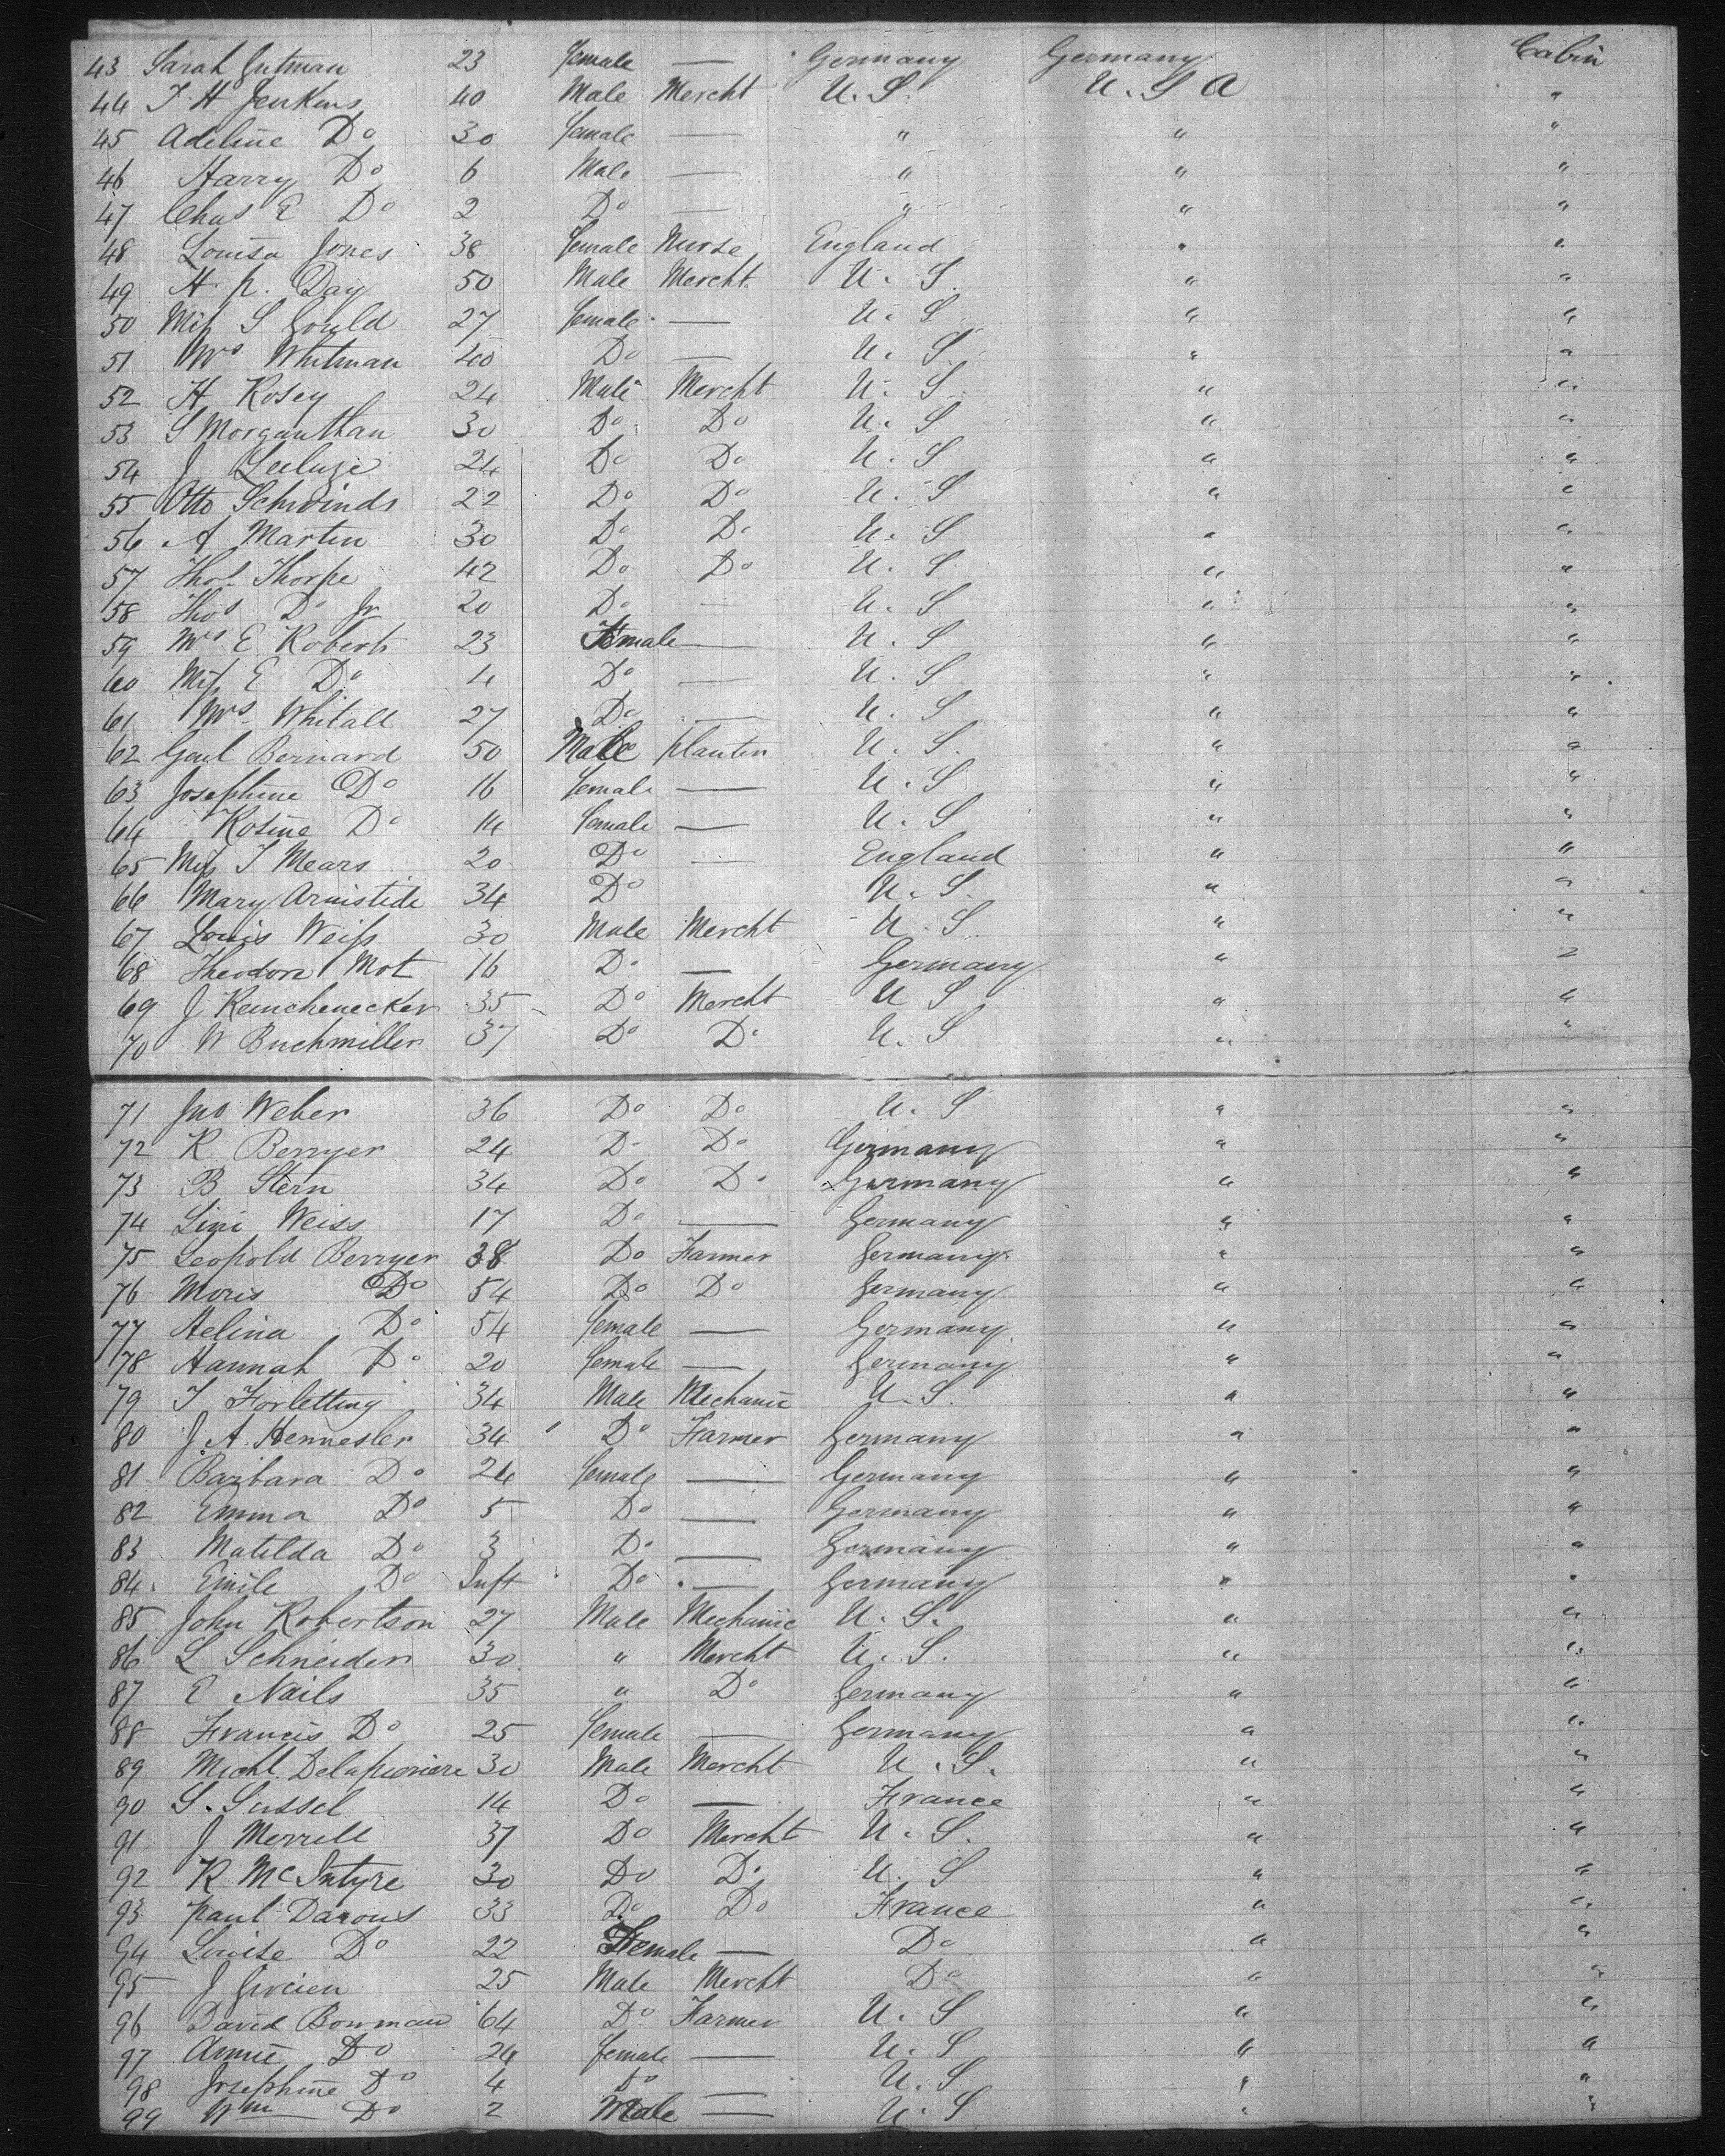 43 Sarah Gutman 23 female — Germany Germany Cabin
44 T. H Jenkins 40 Male Mercht U. S. U. S A "
45 Adeline Do 30 female — " " "
46 Harry Do 6 Male — " " "
47 Chas E Do 2 Do — " " "
48 Louisa Jones 38 female Nurse England " "
49 H. p. Day 50 Male Mercht U. S. " "
50 Miss S Gould 27 female — U. S " "
51 Mrs Whitman 40 Do — U. S. " "
52 H Rosey 24 Male Mercht U. S " "
53 S Morganthau 30 Do Do U. S " "
54 J 24 Do Do U. S " "
55 Otto Schwinds 22 Do Do U. S " "
56 A Martin 30 Do Do U. S " "
57 Thos Thorpe 42 Do Do U. S " "
58 Thos Do Jr 20 Do — U. S " "
59 Mrs E Roberts 23 Female — U. S " "
60 Miss E Do 4 Do — U. S " "
61 Mrs Whitall 27 Do — U. S " "
62 Bernard 50 Male planter U. S. " "
63 Josephine Do 16 female — U. S " "
64 Rosine Do 14 female — U. S " "
65 Miss T Mears 20 Do — England " "
66 Mary Armistide 34 Do U. S. " "
67 Louis Weiss 30 Male Mercht U. S. " "
68 Theodore Mot 16 Do — Germany " "
69 J 35 Do Mercht U S " "
70 W Buchmiller 37 Do Do U. S " "
71 Jno Weber 36 Do Do U. S " "
72 R Berryer 24 Do Do Germany " "
73 B Stern 34 Do Do Germany " "
74 Lini Weiss 17 Do — Germany " "
75 Leopold Berryer 38 Do Farmer Germany " "
76 Moris Do 54 Do Do Germany " "
77 Helina Do 54 female — Germany " "
78 Hannah Do 20 female — Germany " "
79 T Forletting 34 Male Mechanic U. S. " "
80 J. A. Hennesler 34 Do Farmer Germany " "
81 Barbara Do 24 female — Germany " "
82 Emma Do 5 Do — Germany " "
83 Matilda Do 3 Do — Germany " "
84 Emile Do Inft Do — Germany " "
85 John Robertson 27 Male Mechanic U. S. " "
86 L Schneider 30 " Mercht U. S. " "
87 E Nails 35 " Do Germany " "
88 Francis Do 25 female — Germany " "
89 Michl. 30 Male Mercht U. S. " "
90 S. Sussel 14 Do — France " "
91 J Merrell 37 Do Mercht U. S. " "
92 R McIntyre 30 Do Do U. S " "
93 paul Darous 33 Do Do France " "
94 Louise Do 22 Female — Do " "
95 J 25 Male Mercht Do " "
96 David Bowman 64 Do Farmer U. S " "
97 Annie Do 24 female — U. S " "
98 Josephine Do 4 Do — U. S " "
99 Wm Do 2 Male — U. S " "